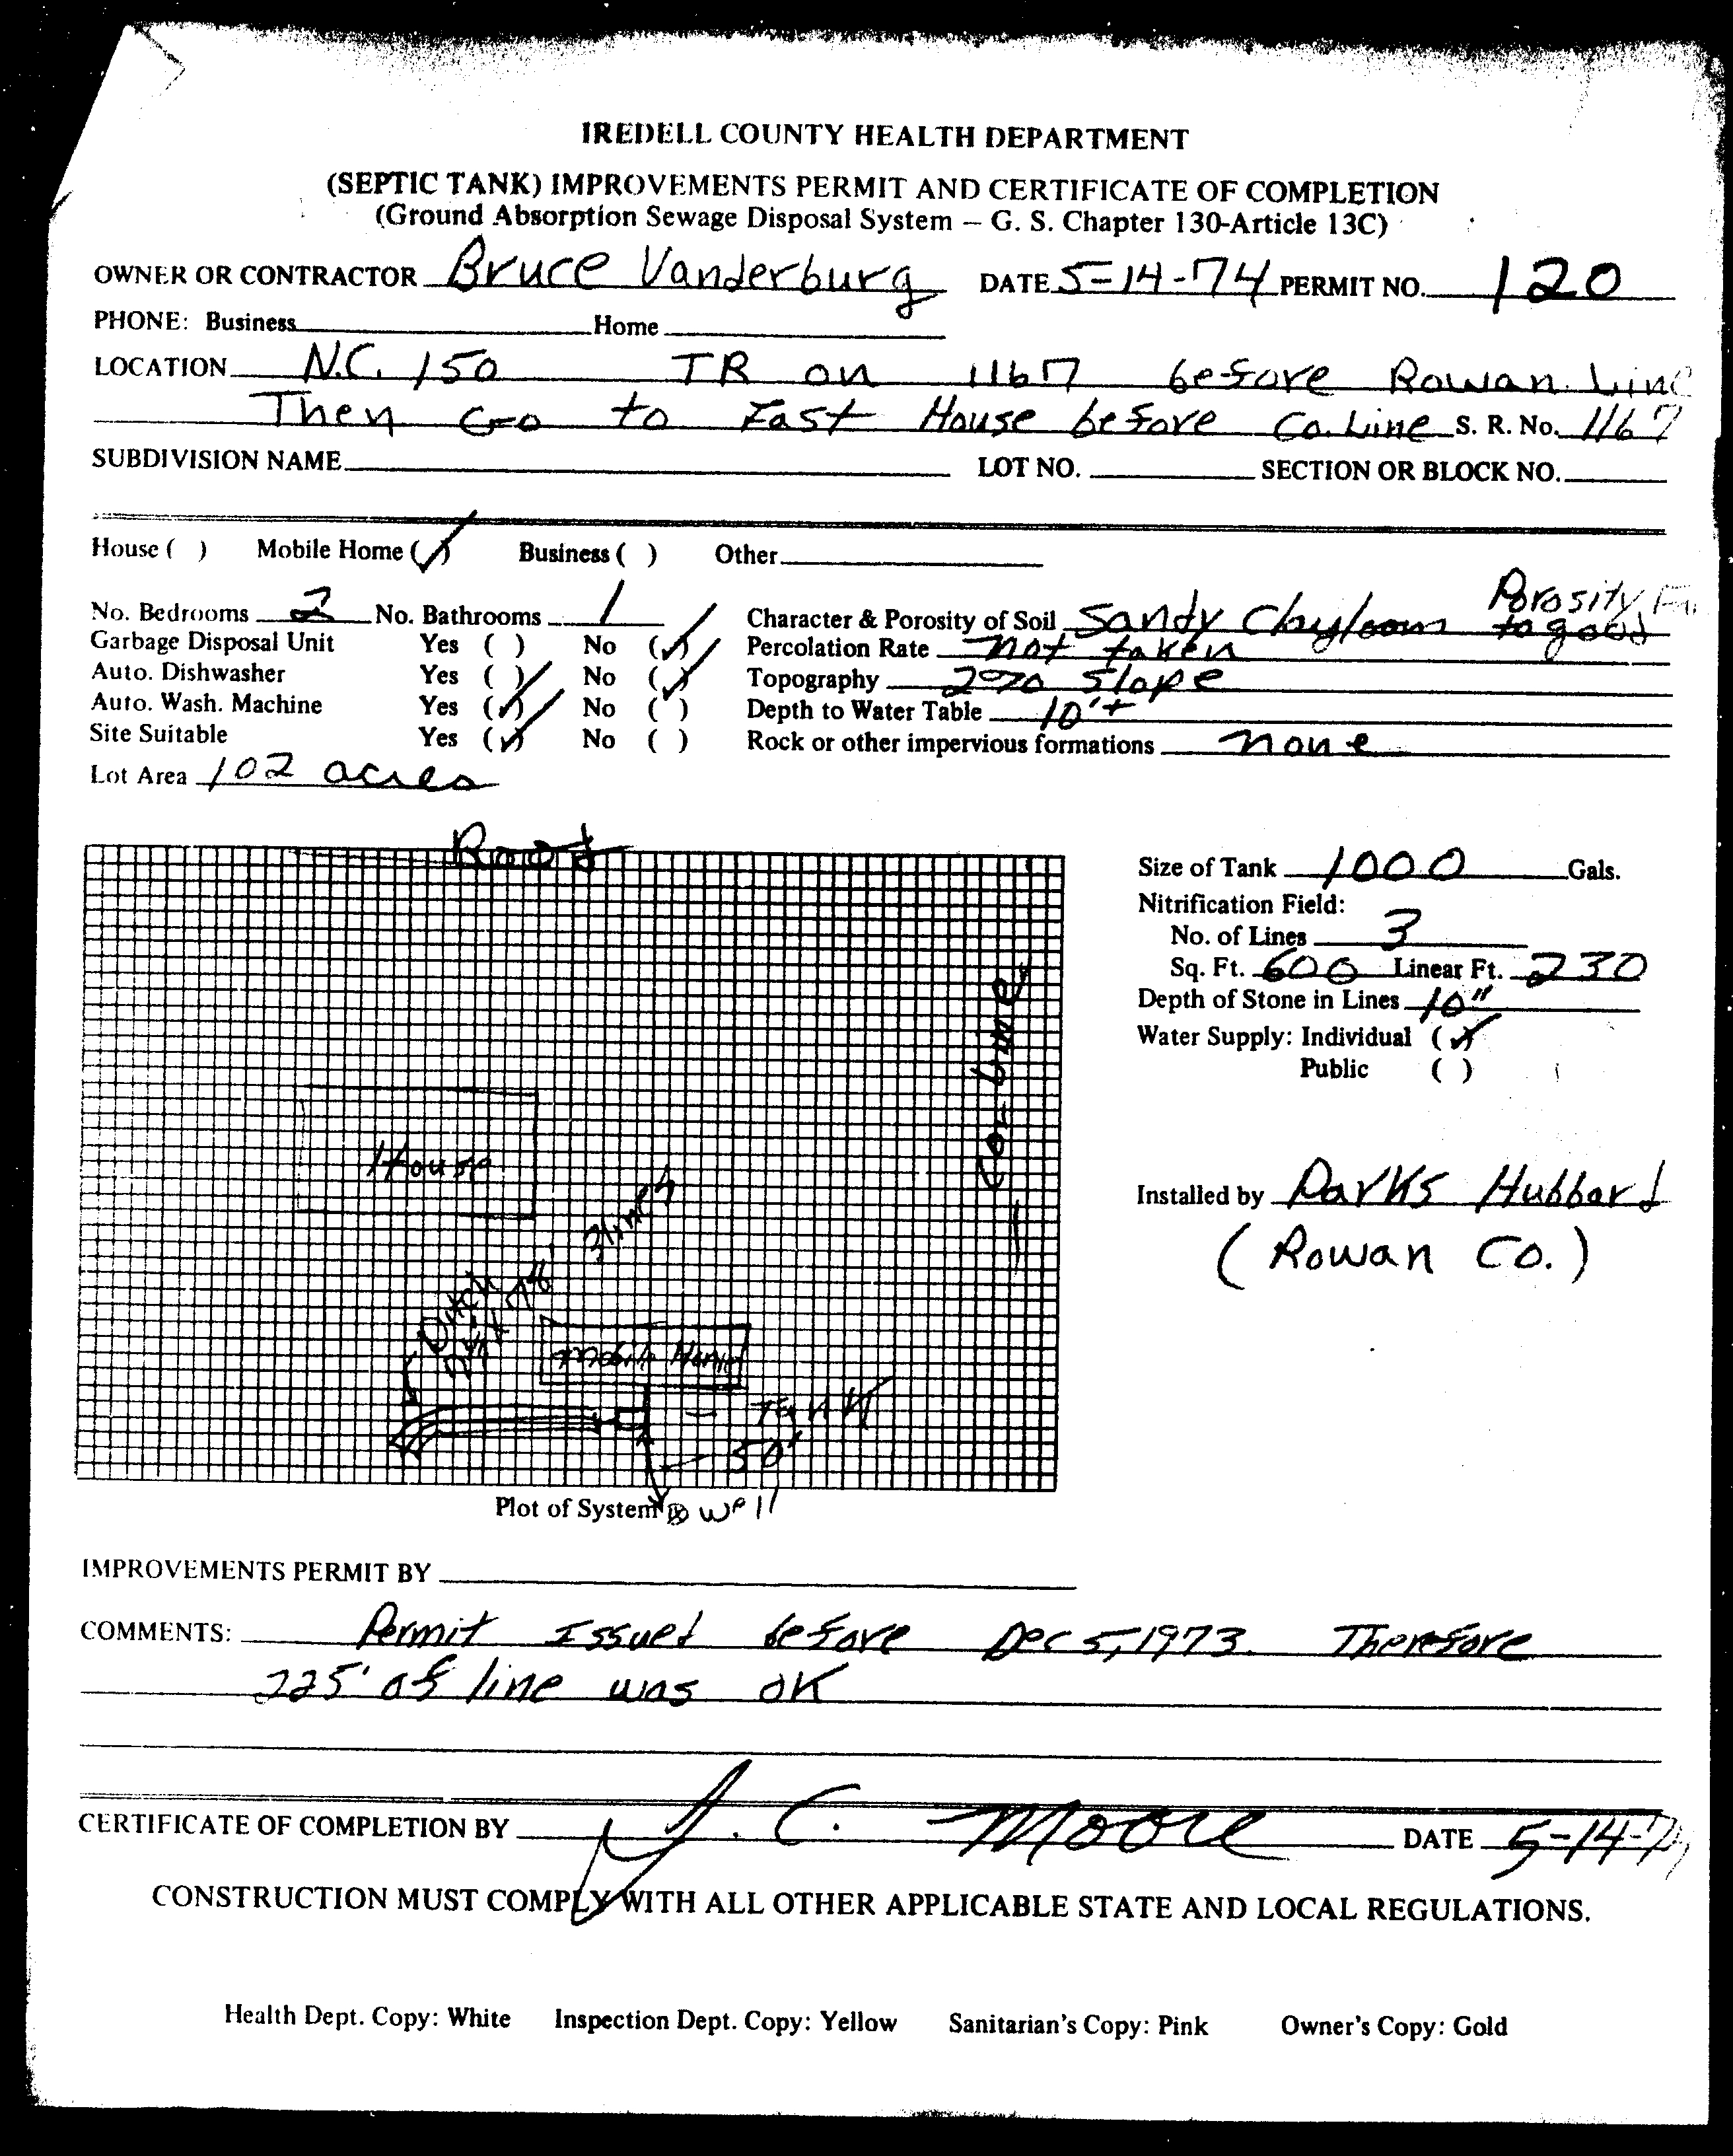 IREDELL COUNTY HEALTH DEPARTMENT
(SEPTIC TANK) IMPROVEMENTS PERMIT AND CERTIFICATE OF COMPLETION
(Ground Absorption Sewage Disposal System — G. S. Chapter 130-Article 13C)
OWNER OR CONTRACTOR Bruce Vanderburg DATE 5-14-74 PERMIT NO. 120
PHONE: Business Home
LOCATION N.C. 150 TR on 1167 before Rowan Line
Then Go to Last House before Co. Line S. R. No. 1167
SUBDIVISION NAME LOT NO. SECTION OR BLOCK NO.
House ( ) Mobile Home (✓) Business ( ) Other
No. Bedrooms 2 No. Bathrooms 1 Character & Porosity of Soil Sandy Clayloam Porosity to good
Garbage Disposal Unit Yes ( ) No (✓) Percolation Rate not taken
Auto. Dishwasher Yes ( ) No (✓) Topography 2% Slope
Auto. Wash. Machine Yes (✓) No ( ) Depth to Water Table 10'+
Site Suitable Yes (✓) No ( ) Rock or other impervious formations none
Lot Area 102 acres
Road
Size of Tank 1000 Gals.
Nitrification Field:
No. of Lines 3
Sq. Ft. 600 Linear Ft. 230
Depth of Stone in Lines 10"
Water Supply: Individual (✓)
Public ( )
Co. Line
House
3 lines
Ditch
Mobile Home
Tank
50'
Installed by Parks Hubbard
(Rowan Co.)
Plot of System ⊗ Well
IMPROVEMENTS PERMIT BY
COMMENTS: Permit Issued before Dec 5, 1973. Therefore
225' of line was OK
CERTIFICATE OF COMPLETION BY J. C. Moore DATE 5-14-74
CONSTRUCTION MUST COMPLY WITH ALL OTHER APPLICABLE STATE AND LOCAL REGULATIONS.
Health Dept. Copy: White Inspection Dept. Copy: Yellow Sanitarian's Copy: Pink Owner's Copy: Gold